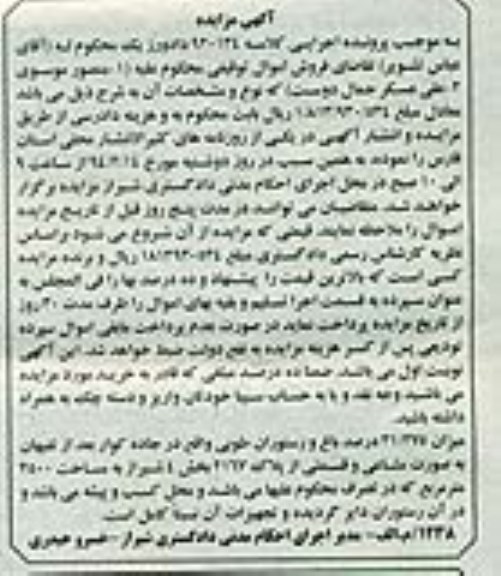 آگهی مزایده
به موجب پرونده اجرایی کلاسه ۹۳۰۱۳۴ دادورز یک محکوم له (آقای
عباس تقاضای فروش اموال توقیفی محکوم علیه (۱-منصور موسوی
۲-علی عسکر جمال دوست) که نوع و مشخصات آن به شرح ذیل می باشد
معادل مبلغ ریال بابت محکوم به و هزینه دادرسی از طریق
مزایده و انتشار آگهی در یکی از روزنامه های کثیرالانتشار محلی استان
فارس را نموده، به همین سبب در روز دوشنبه مورخ ۹۴/۲/۱۴ از ساعت ۹
الی ۱۰ صبح در محل اجرای احکام مدنی دادگستری شیراز مزایده برگزار
خواهد شد. متقاضیان می توانند در مدت پنج روز قبل از تاریخ مزایده
اموال را ملاحظه نمایند. قیمتی که مزایده از آن شروع می شود براساس
نظریه کارشناس رسمی دادگستری مبلغ ریال و برنده مزایده
کسی است که بالاترین قیمت را پیشنهاد و ده درصد بها را فی المجلس به
عنوان سپرده به قسمت اجرا تسلیم و بقیه بهای اموال را ظرف مدت ۳۰ روز
از تاریخ مزایده پرداخت نماید در صورت عدم پرداخت مابقی اموال سپرده
تودیعی پس از کسر هزینه مزایده به نفع دولت ضبط خواهد شد. این آگهی
نوبت اول می باشد. ضمنا ده درصد مبلغی که قادر به خرید مورد مزایده
می باشید وجه نقد و یا به حساب سیبا خودتان واریز و دسته چک به همراه
داشته باشید.
میزان ۳۱/۳۷۵ درصد باغ و رستوران طوبی واقع در جاده کوار بعد از
به صورت مشاعی و قسمتی از پلاک ۲۱۶۷ بخش ۴ شیراز به مساحت ۳۵۰۰
مترمربع که در تصرف محکوم علیها می باشد و محل کسب و پیشه می باشد و
در آن رستوران دایر گردیده و تجهیزات آن کامل است.
۱۲۳۸/م.الف- مدیر اجرای احکام مدنی دادگستری شیراز-خسرو حیدری